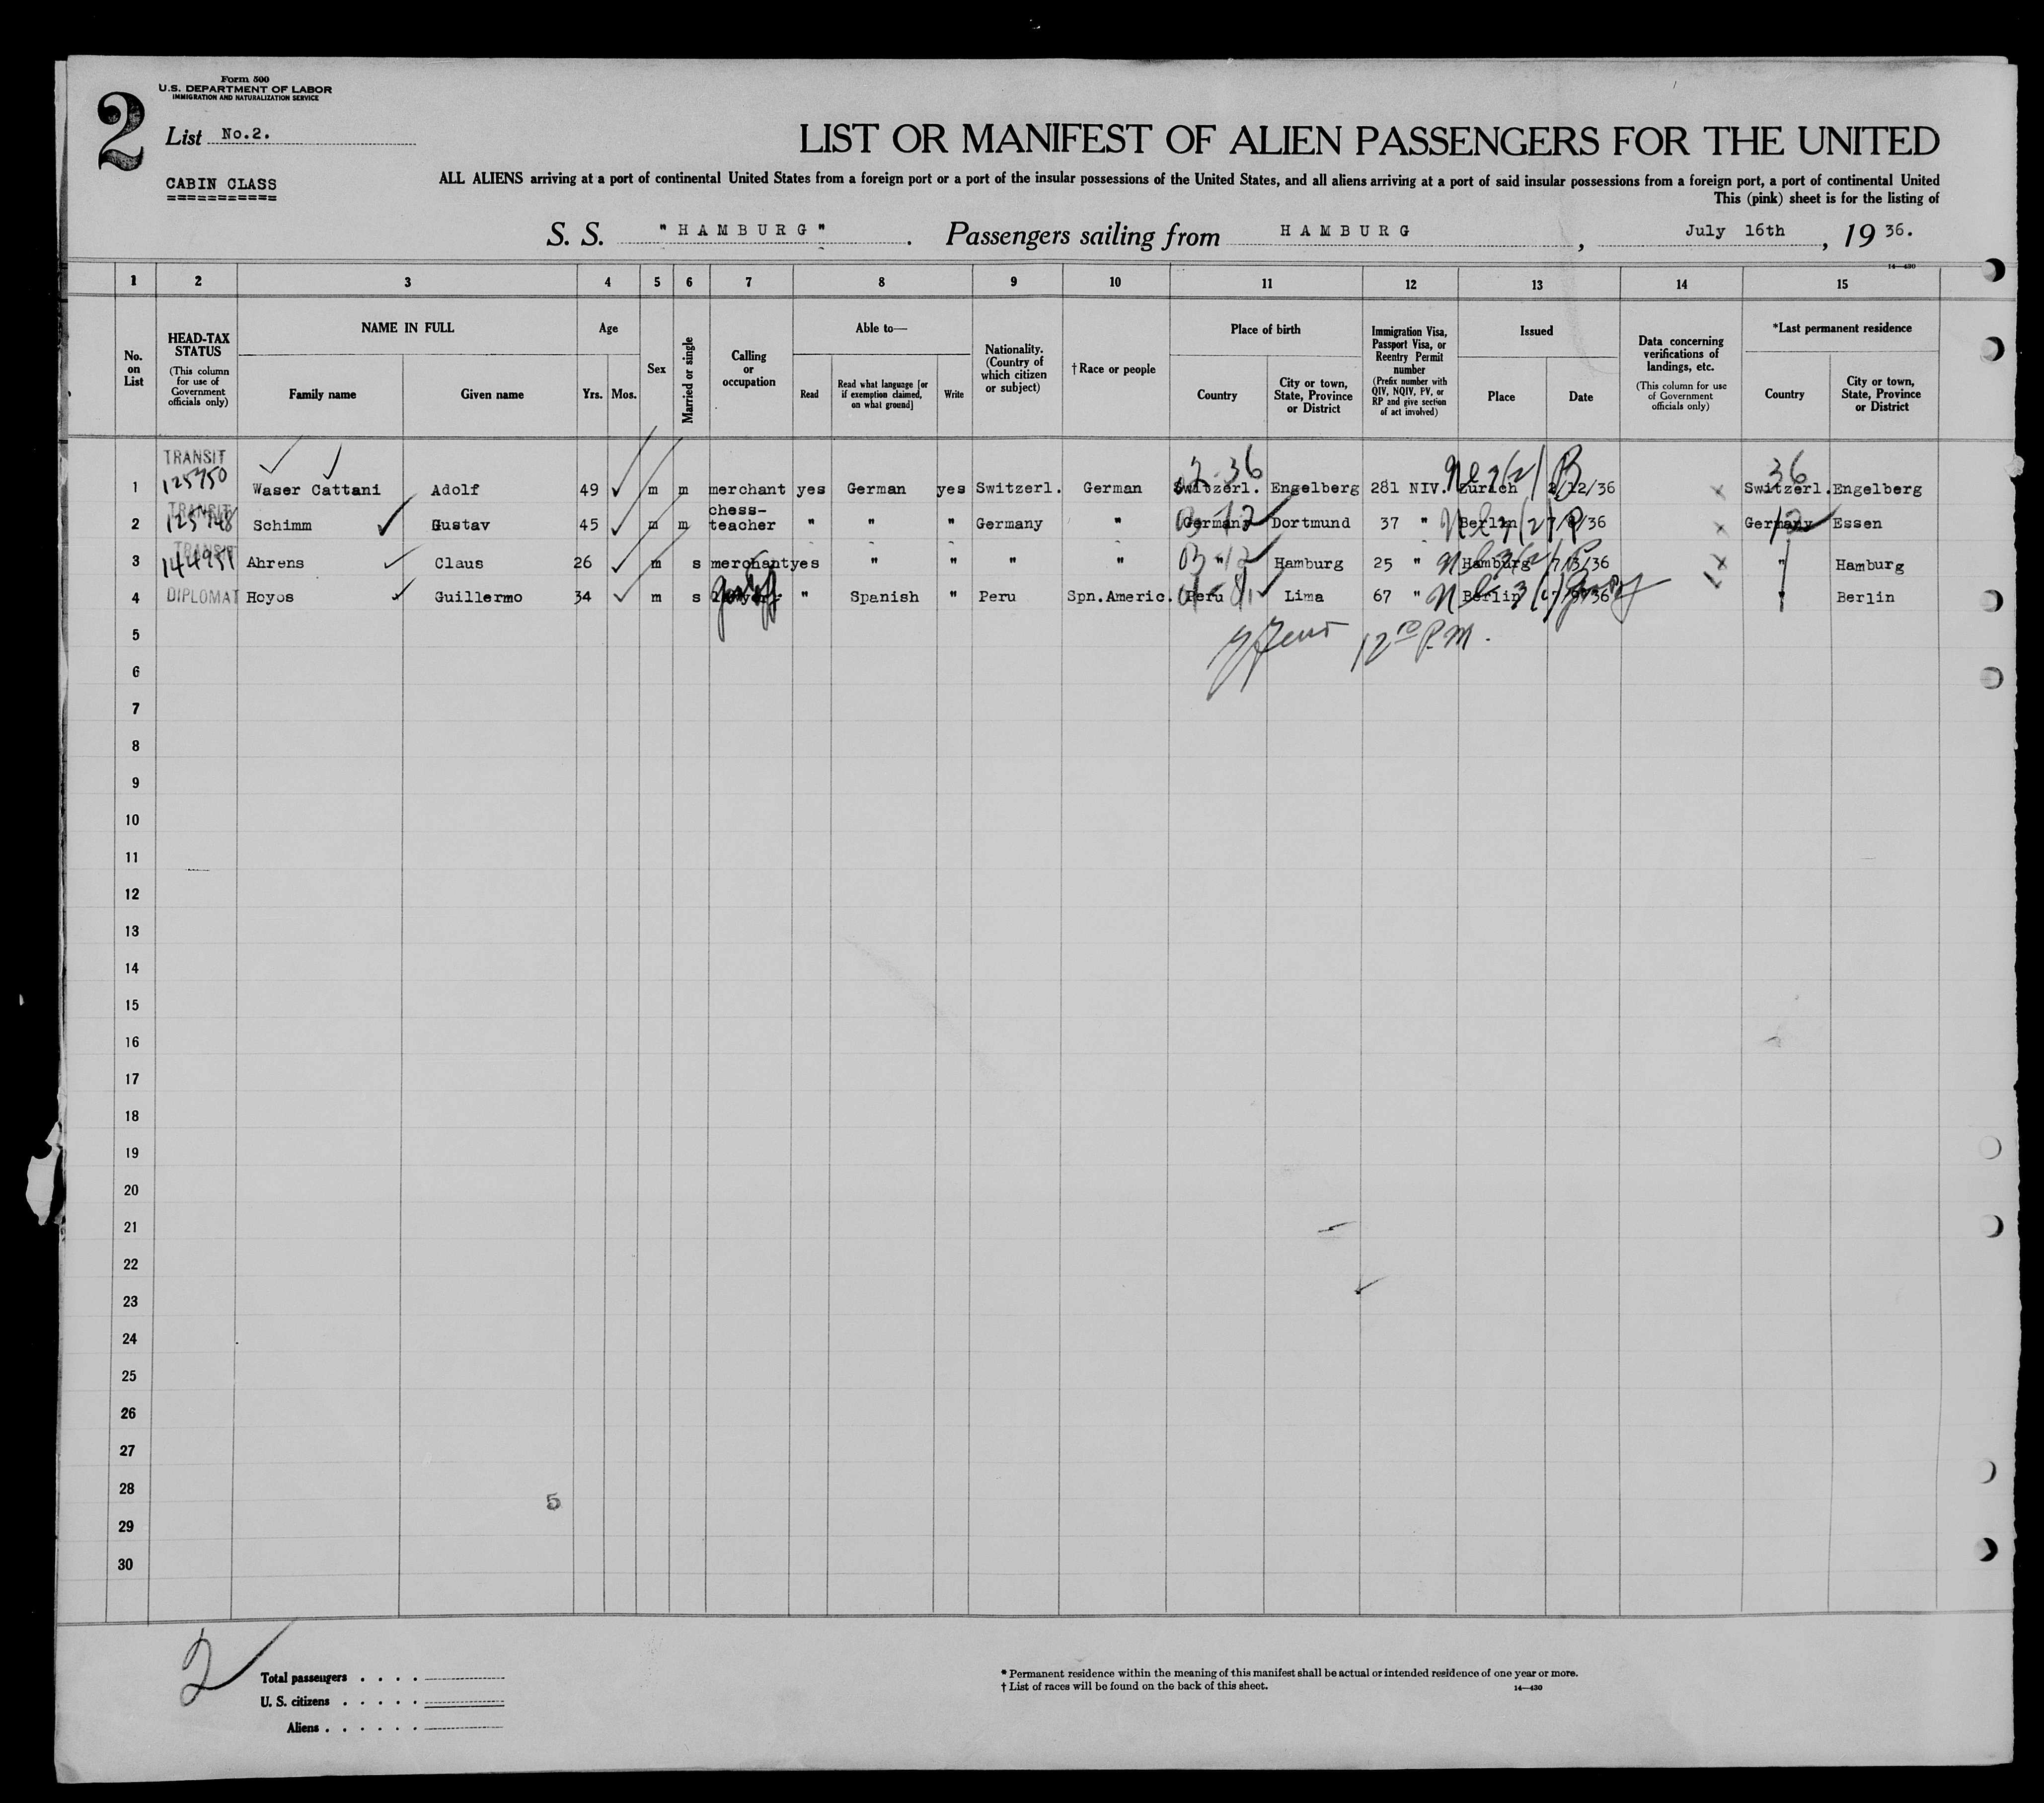 2
Form 500
U.S. DEPARTMENT OF LABOR
IMMIGRATION AND NATURALIZATION SERVICE
List No.2.
CABIN CLASS
LIST OR MANIFEST OF ALIEN PASSENGERS FOR THE UNITED
ALL ALIENS arriving at a port of continental United States from a foreign port or a port of the insular possessions of the United States, and all aliens arriving at a port of said insular possessions from a foreign port, a port of continental United
This (pink) sheet is for the listing of
S. S. "HAMBURG". Passengers sailing from HAMBURG, July 16th, 1936.
14—430
1 2 3 4 5 6 7 8 9 10 11 12 13 14 15
No. on List
HEAD-TAX STATUS
(This column for use of Government officials only)
NAME IN FULL
Family name Given name
Age
Yrs. Mos.
Sex
Married or single
Calling or occupation
Able to—
Read
Read what language [or if exemption claimed, on what ground]
Write
Nationality. (Country of which citizen or subject)
†Race or people
Place of birth
Country
City or town, State, Province or District
Immigration Visa, Passport Visa, or Reentry Permit number
(Prefix number with QIV, NQIV, PV, or RP and give section of act involved)
Issued
Place Date
Data concerning verifications of landings, etc.
(This column for use of Government officials only)
*Last permanent residence
Country
City or town, State, Province or District
TRANSIT 125750
02-36 36
1 Waser Cattani Adolf 49 m m merchant yes German yes Switzerl. German Switzerl. Engelberg 281 NIV. Zürich 2/12/36 Switzerl. Engelberg
TRANSIT 125748
2 Schimm Gustav 45 m m chess-teacher " " " Germany " Germany Dortmund 37 " Berlin 36 Germany 12 Essen
TRANSIT
3 Ahrens Claus 26 m s merchant yes " " " " " Hamburg 25 " Hamburg 7/13/36 " Hamburg
4 DIPLOMAT Hoyos Guillermo 34 m s " Spanish " Peru Spn.Americ. Peru Lima 67 " Berlin 36 " Berlin
5
12 P.M.
6
7
8
9
10
11
12
13
14
15
16
17
18
19
20
21
22
23
24
25
26
27
28
5
29
30
2
Total passengers . . . .
U. S. citizens . . . . .
Aliens . . . . . .
* Permanent residence within the meaning of this manifest shall be actual or intended residence of one year or more.
† List of races will be found on the back of this sheet.
14—430